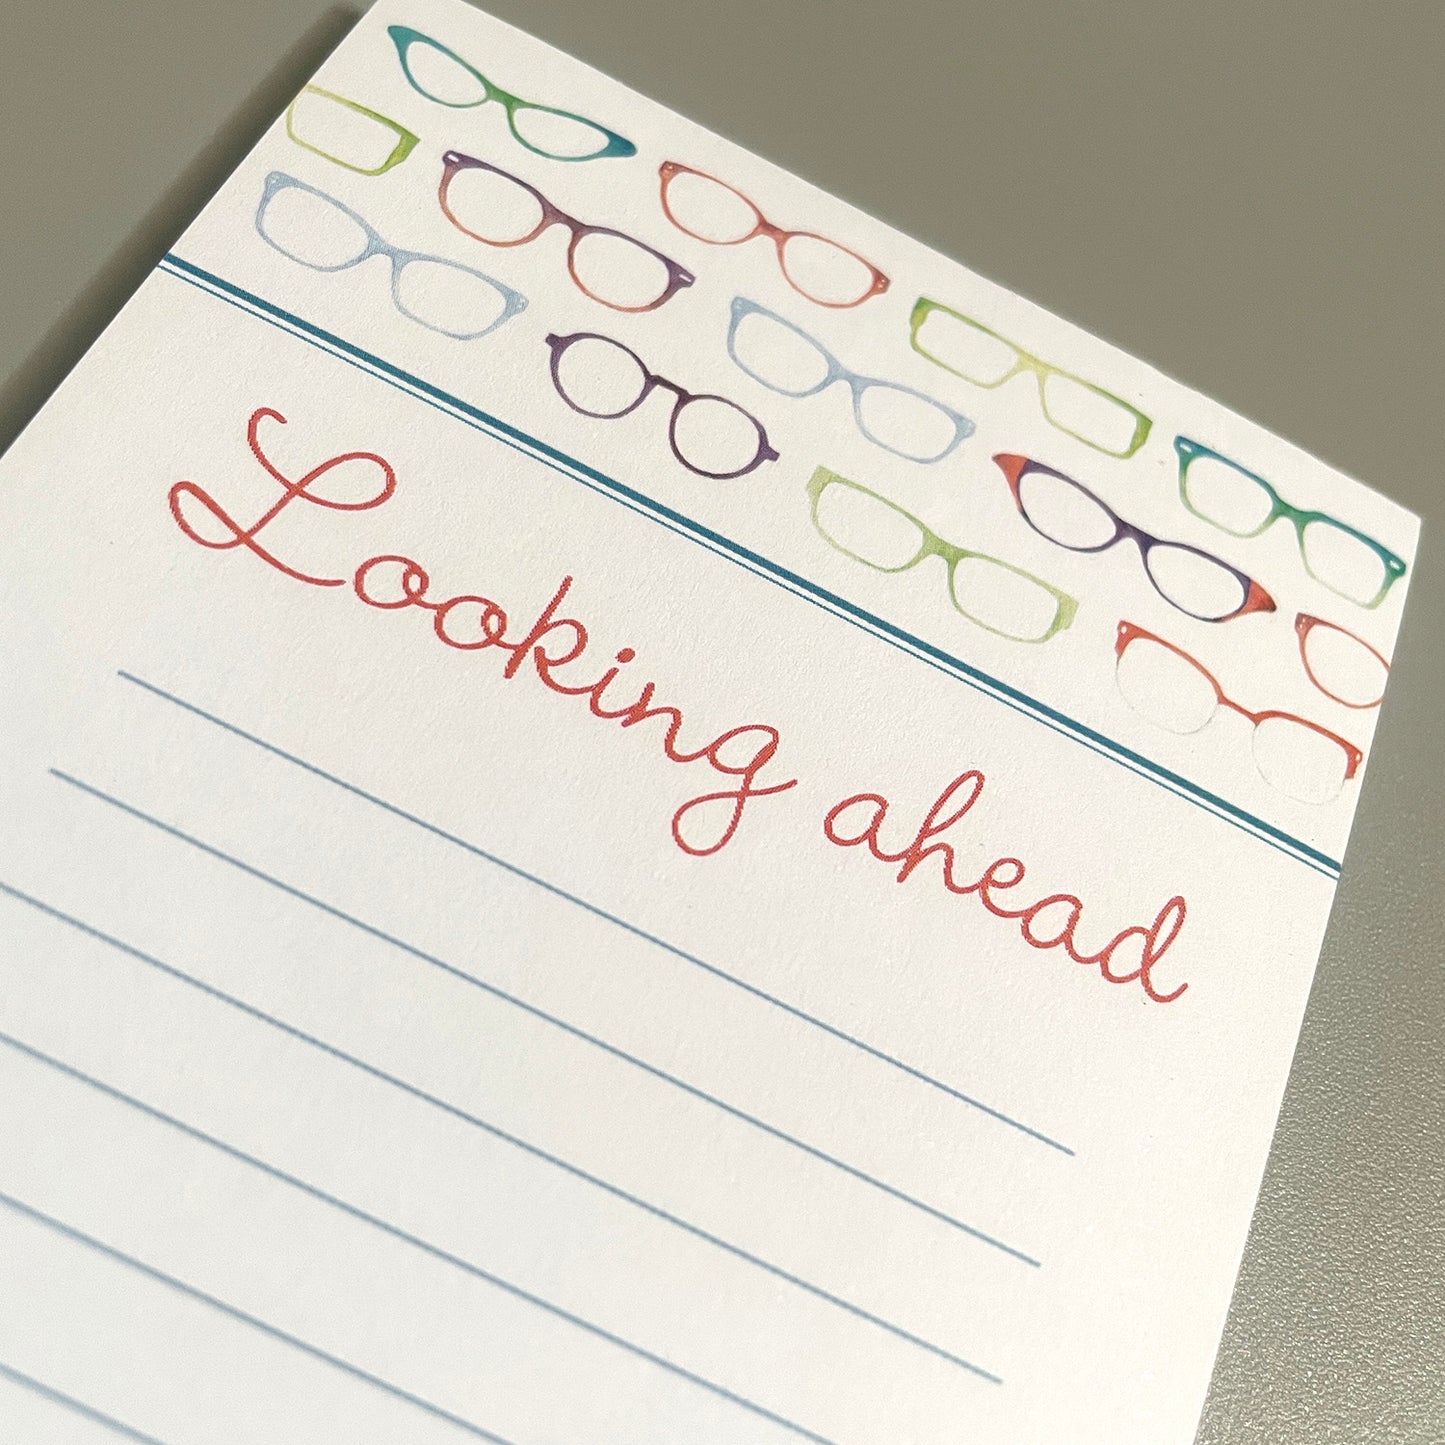 Looking ahead